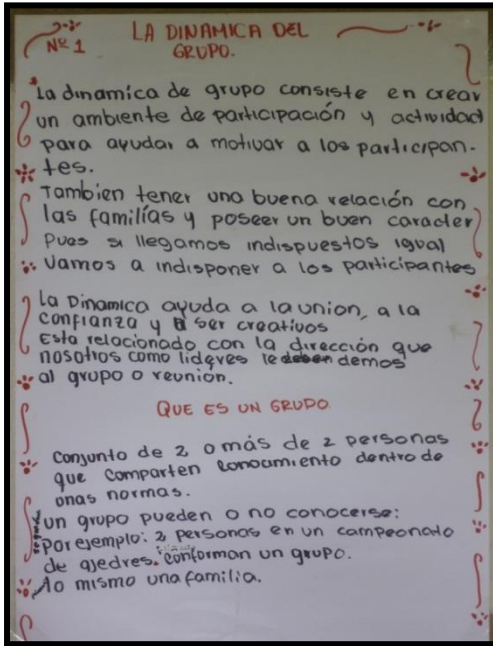 Nº 1
LA DINAMICA DEL
GRUPO.
La dinamica de grupo consiste en crear
un ambiente de participación y actividad
para ayudar a motivar a los participan-
tes.
Tambien tener una buena relación con
las familías y poseer un buen caracter
pues si llegamos indispuestos igual
vamos a indisponer a los participantes
La Dinamica ayuda a la union, a la
confianza y a ser creativos
Esta relacionado con la dirección que
nosotros como lideres le demos
al grupo o reunion.
QUE ES UN GRUPO
Conjunto de 2 o más de 2 personas
que comparten conocimiento dentro de
unas normas.
un grupo pueden o no conocerse:
Por ejemplo: 2 personas en un campeonato
de ajedres. conforman un grupo.
Lo mismo una familia.